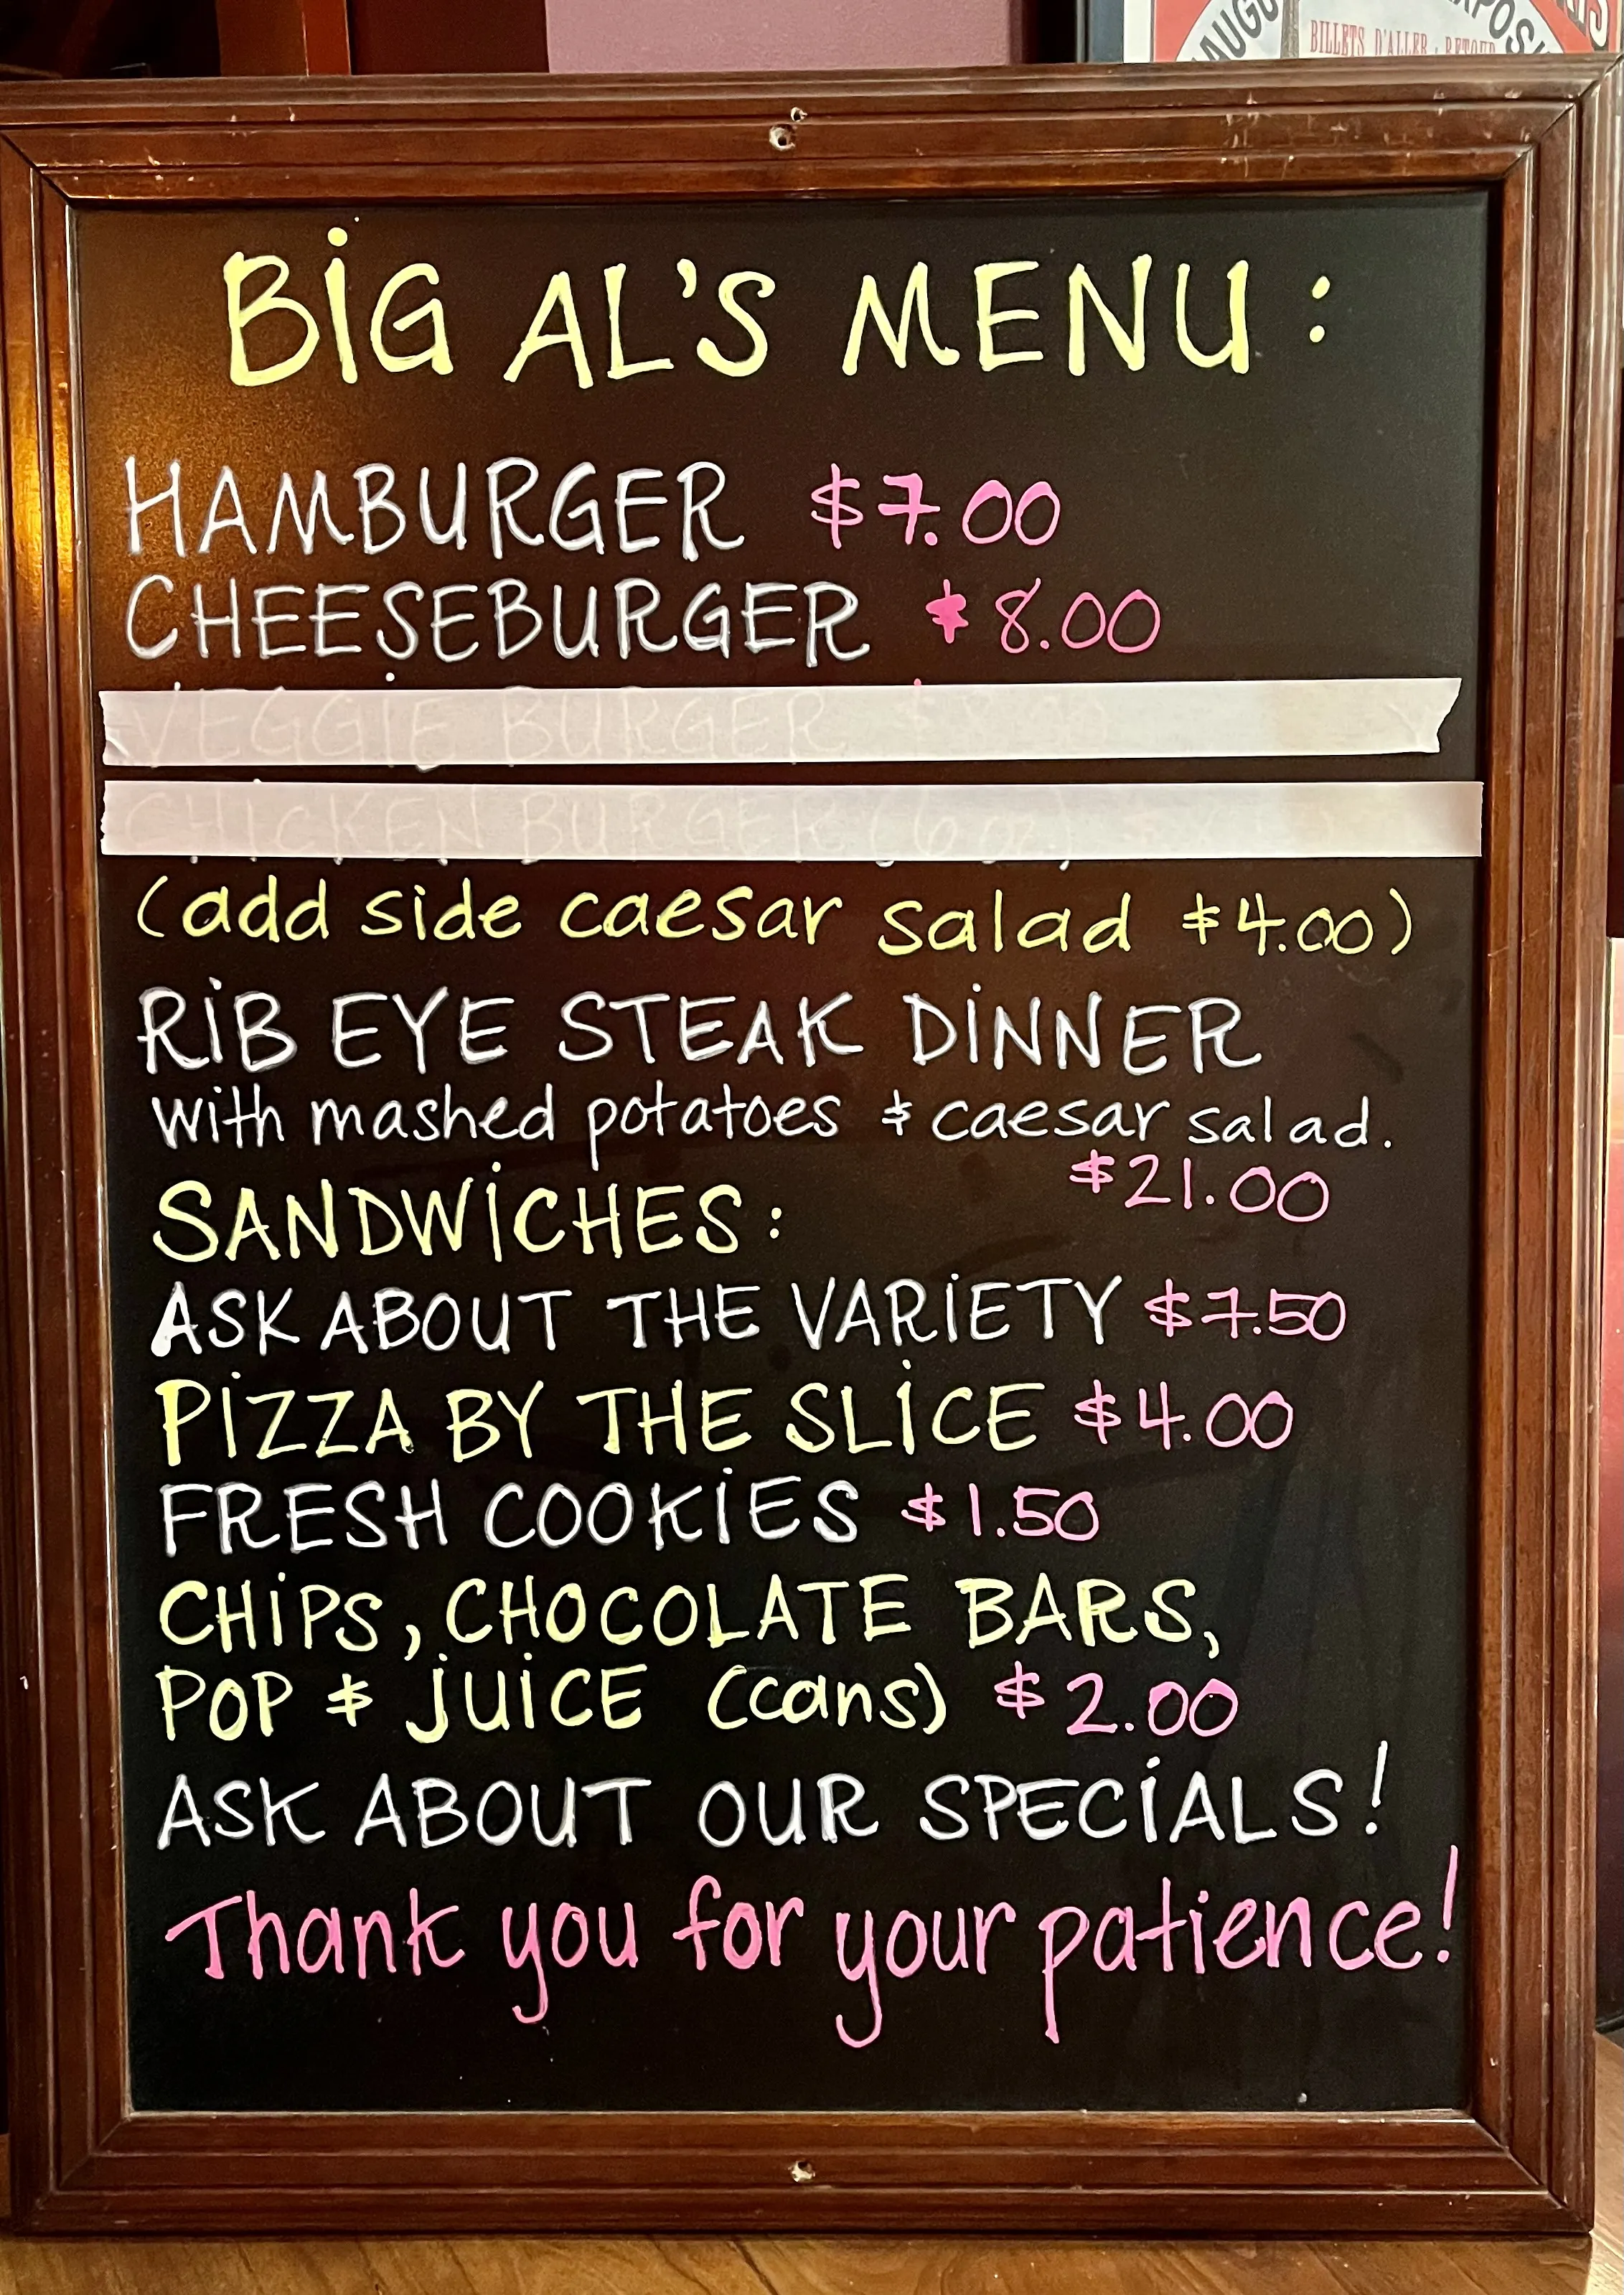 BILLETS D'ALLER - RETOUR
BiG AL'S MENU:
HAMBURGER $7.00
CHEESEBURGER $8.00
VEGGIE BURGER
CHICKEN BURGER (6 oz)
(add side caesar salad $4.00)
RiB EYE STEAK DiNNER
with mashed potatoes & caesar salad.
$21.00
SANDWiCHES:
ASK ABOUT THE VARiETY $7.50
PiZZA BY THE SLiCE $4.00
FRESH COOKiES $1.50
CHiPS, CHOCOLATE BARS,
POP & jUiCE (cans) $2.00
ASK ABOUT OUR SPECiALS!
Thank you for your patience!